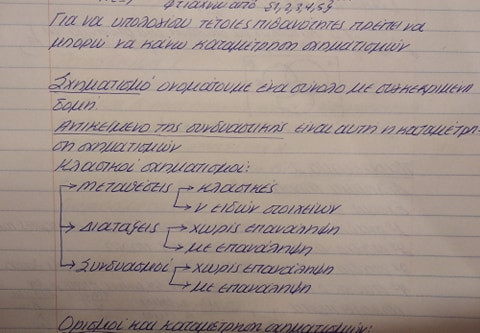 φτιάχνω από 1,2,3,4,5
Για να υπολογίσω τέτοιες πιθανότητες πρέπει να
μπορώ να κάνω καταμέτρηση σχηματισμών
Σχηματισμό ονομάζουμε ένα σύνολο με συγκεκριμένη
δομή
Αντικείμενο της συνδυαστικής είναι αυτή η καταμέτρη-
ση σχηματισμών
Κλασικοί σχηματισμοί:
Μεταθέσεις κλασικές
ν ειδών στοιχείων
Διατάξεις χωρίς επανάληψη
με επανάληψη
Συνδυασμοί χωρίς επανάληψη
με επανάληψη
Ορισμοί και καταμέτρηση σχηματισμών: